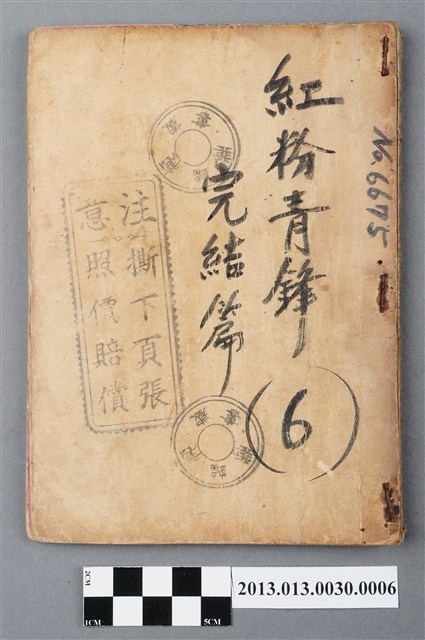 紅粉青鋒
(6)
完結篇
No.6675
注意
撕下頁張
照價賠償
2CM
1CM
5CM
2013.013.0030.0006